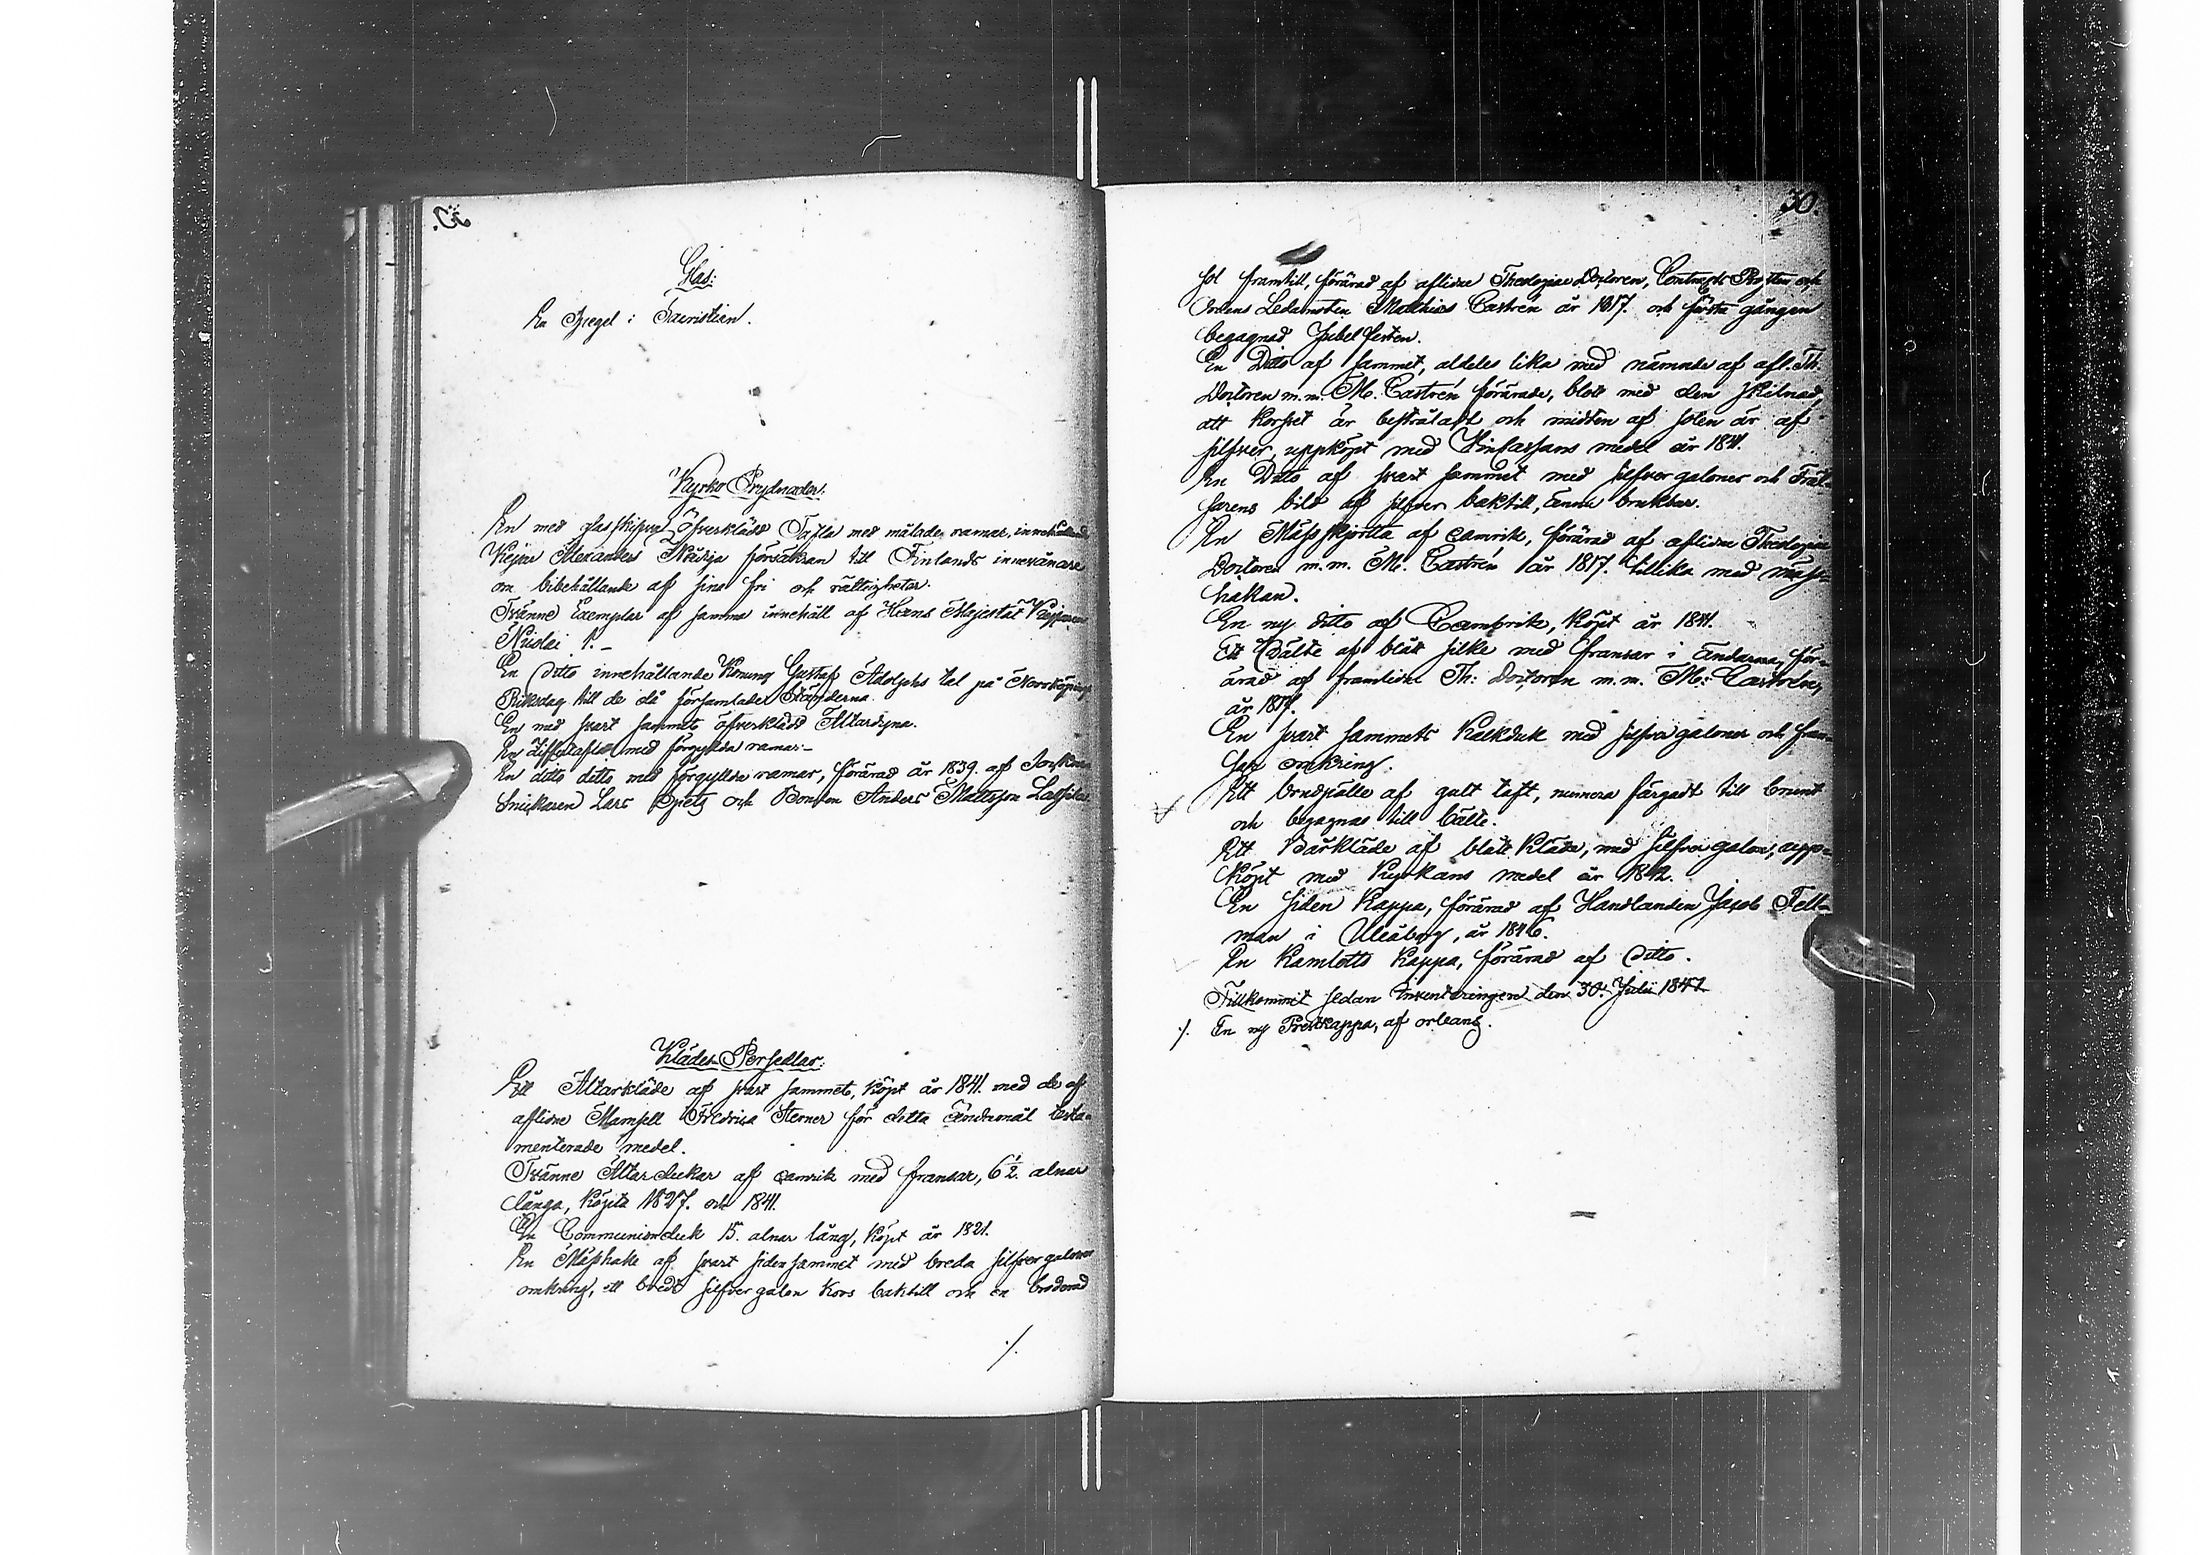 Glas:
En Spegel i Sacristian.
Kyrko Prydnader:
En med glasskifva öfverklädd Tafla med målade ramar, innehållande
Kejsar Alexanders Nådiga försäkran till Finlands innevånare
om bibehållande af sina fri och rättigheter.
Tvänne Exemplar af samma innehåll af Hans Majestät Kejsaren
Nicolai 1. –
En Ditto innehållande Konung Gustaf Adolphs tal på Norrköpings
Riksdag till de då församlade Ständerna.
En med svart sammet öfverklädd Altardyna.
En Ziffertafla med förgyllda ramar. –
En ditto ditto med förgyllda ramar, förärad år 1839. af Sockne
Snickaren Lars Spets och Bonden Anders Mattsson
Klädes Persedlar:
Ett Altarkläde af svart sammet, köpt år 1841. med de af
aflidne Mamsell Fredrica Sterner för detta ändamål testa-
menterade medel.
Tvänne Altardukar af camrik med fransar, 6 1/2. alnar
långa, köpta 1827. och 1841.
En Communionduk 15. alnar lång, köpt år 1821.
En Messhake af svart siden sammet med breda silfver galoner
omkring, ett bredt silfver galon kors baktill och en broderad
./.
30.
sol framtill, förärad af aflidne Theologiae Doctoren, Contracts Prosten och
Ordens Ledamoten Matthias Castrén år 1817. och första gången
begagnad Jubelfesten.
En Ditto af sammet, aldeles lika med nämnde af afl. Th.
Doctoren m.m. M. Castrén förärade, blott med den skilnad,
att korset är bestråladt och midten af solen är af
silfver, uppköpt med Vincassans medel år 1841.
En Ditto af svart sammet med silfver galoner och Fräl-
sarens bild af silfver baktill, ännu brukbar.
En Mässkjorta af camrik, förärad af aflidne Theologiae
Doctoren m.m. M. Castrén år 1817. tillika med mäss-
hakan.
En ny ditto af Cambrik, köpt år 1841.
Ett Bälte af blått silke med fransar i ändarna, för-
ärad af framlidne Th: Doctoren m.m. M: Castrén,
år 1817.
En svart sammets Kalkduk med silfver galoner och fran-
sar omkring.
Ett brudpälle af gult taft, numera färgadt till brunt
och begagnas till bälte.
Ett Bårkläde af blått kläde, med silfver galon, upp-
köpt med Kyrkans medel år 1842.
En siden kappa, förärad af Handlanden Jacob Fell-
man i Uleåborg, år 1846.
En kamlotts kappa, förärad af Ditto.
Tillkommit sedan Inventeringen den 30. Julii 1847
./. En ny Prestkappa, af orleans.